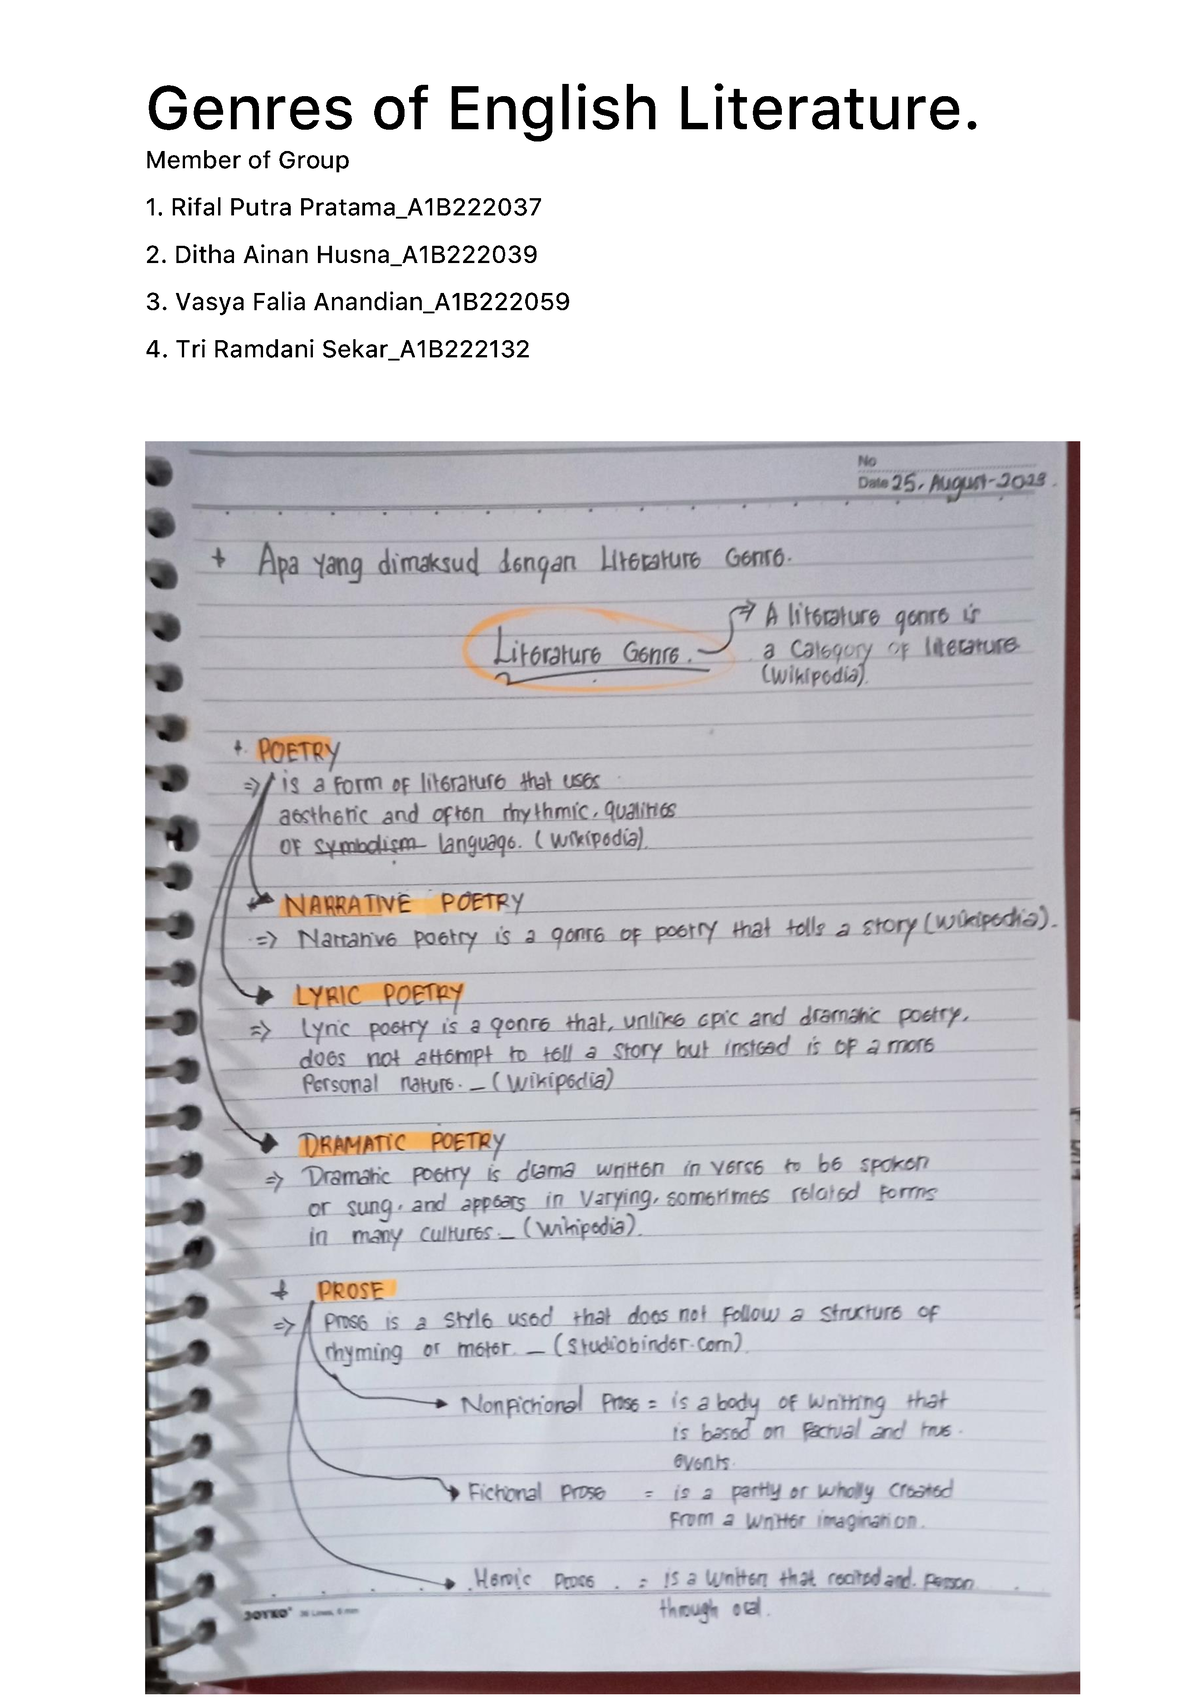 Genres of English Literature.
Member of Group
1. Rifal Putra Pratama_A1B222037
2. Ditha Ainan Husna_A1B222039
3. Vasya Falia Anandian_A1B222059
4. Tri Ramdani Sekar_A1B222132
No
Date 25, August-2023.
+ Apa yang dimaksud dengan Literature Genre.
Literature Genre. ⇒ A literature genre is
a Category of literature
(Wikipedia).
+ POETRY
⇒ is a form of literature that uses
aesthetic and often rhythmic, qualities
of symbolism language. (Wikipedia).
NARRATIVE POETRY
⇒ Narrative poetry is a genre of poetry that tells a story (Wikipedia).
LYRIC POETRY
⇒ Lyric poetry is a genre that, unlike epic and dramatic poetry,
does not attempt to tell a story but instead is of a more
Personal nature. _ (Wikipedia)
DRAMATIC POETRY
⇒ Dramatic poetry is drama written in verse to be spoken
or sung, and appears in Varying, sometimes related forms
in many cultures. _ (Wikipedia).
+ PROSE
⇒ Prose is a style used that does not follow a structure of
rhyming or meter. _ (Studiobinder.com)
Nonfictional Prose = is a body of writting that
is based on factual and true
events.
Fictional Prose = is a partly or wholly created
from a writter imagination.
Heroic Prose = is a written that recited and. Person
through oral.
JOYKO 26 Lines, 8 mm